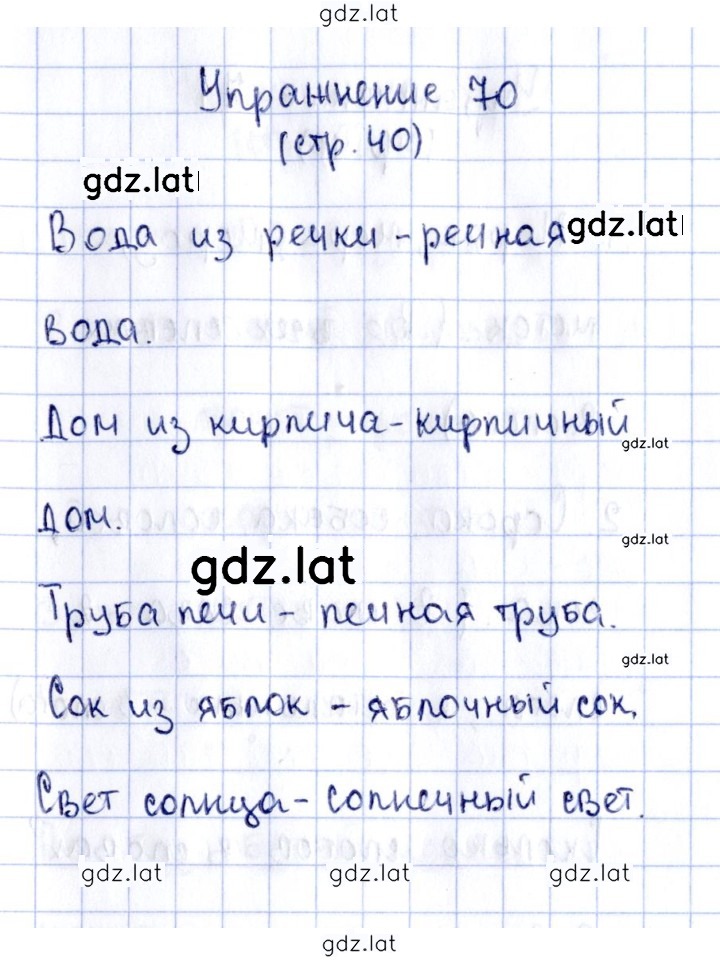 gdz.lat
Упражнение 70
(стр. 40)
gdz.lat
Вода из речки - речная gdz.lat
вода.
Дом из кирпича - кирпичный
gdz.lat
дом.
gdz.lat
gdz.lat
Труба печи - печная труба.
gdz.lat
Сок из яблок - яблочный сок.
Свет солнца - солнечный свет.
gdz.lat gdz.lat gdz.lat
gdz.lat